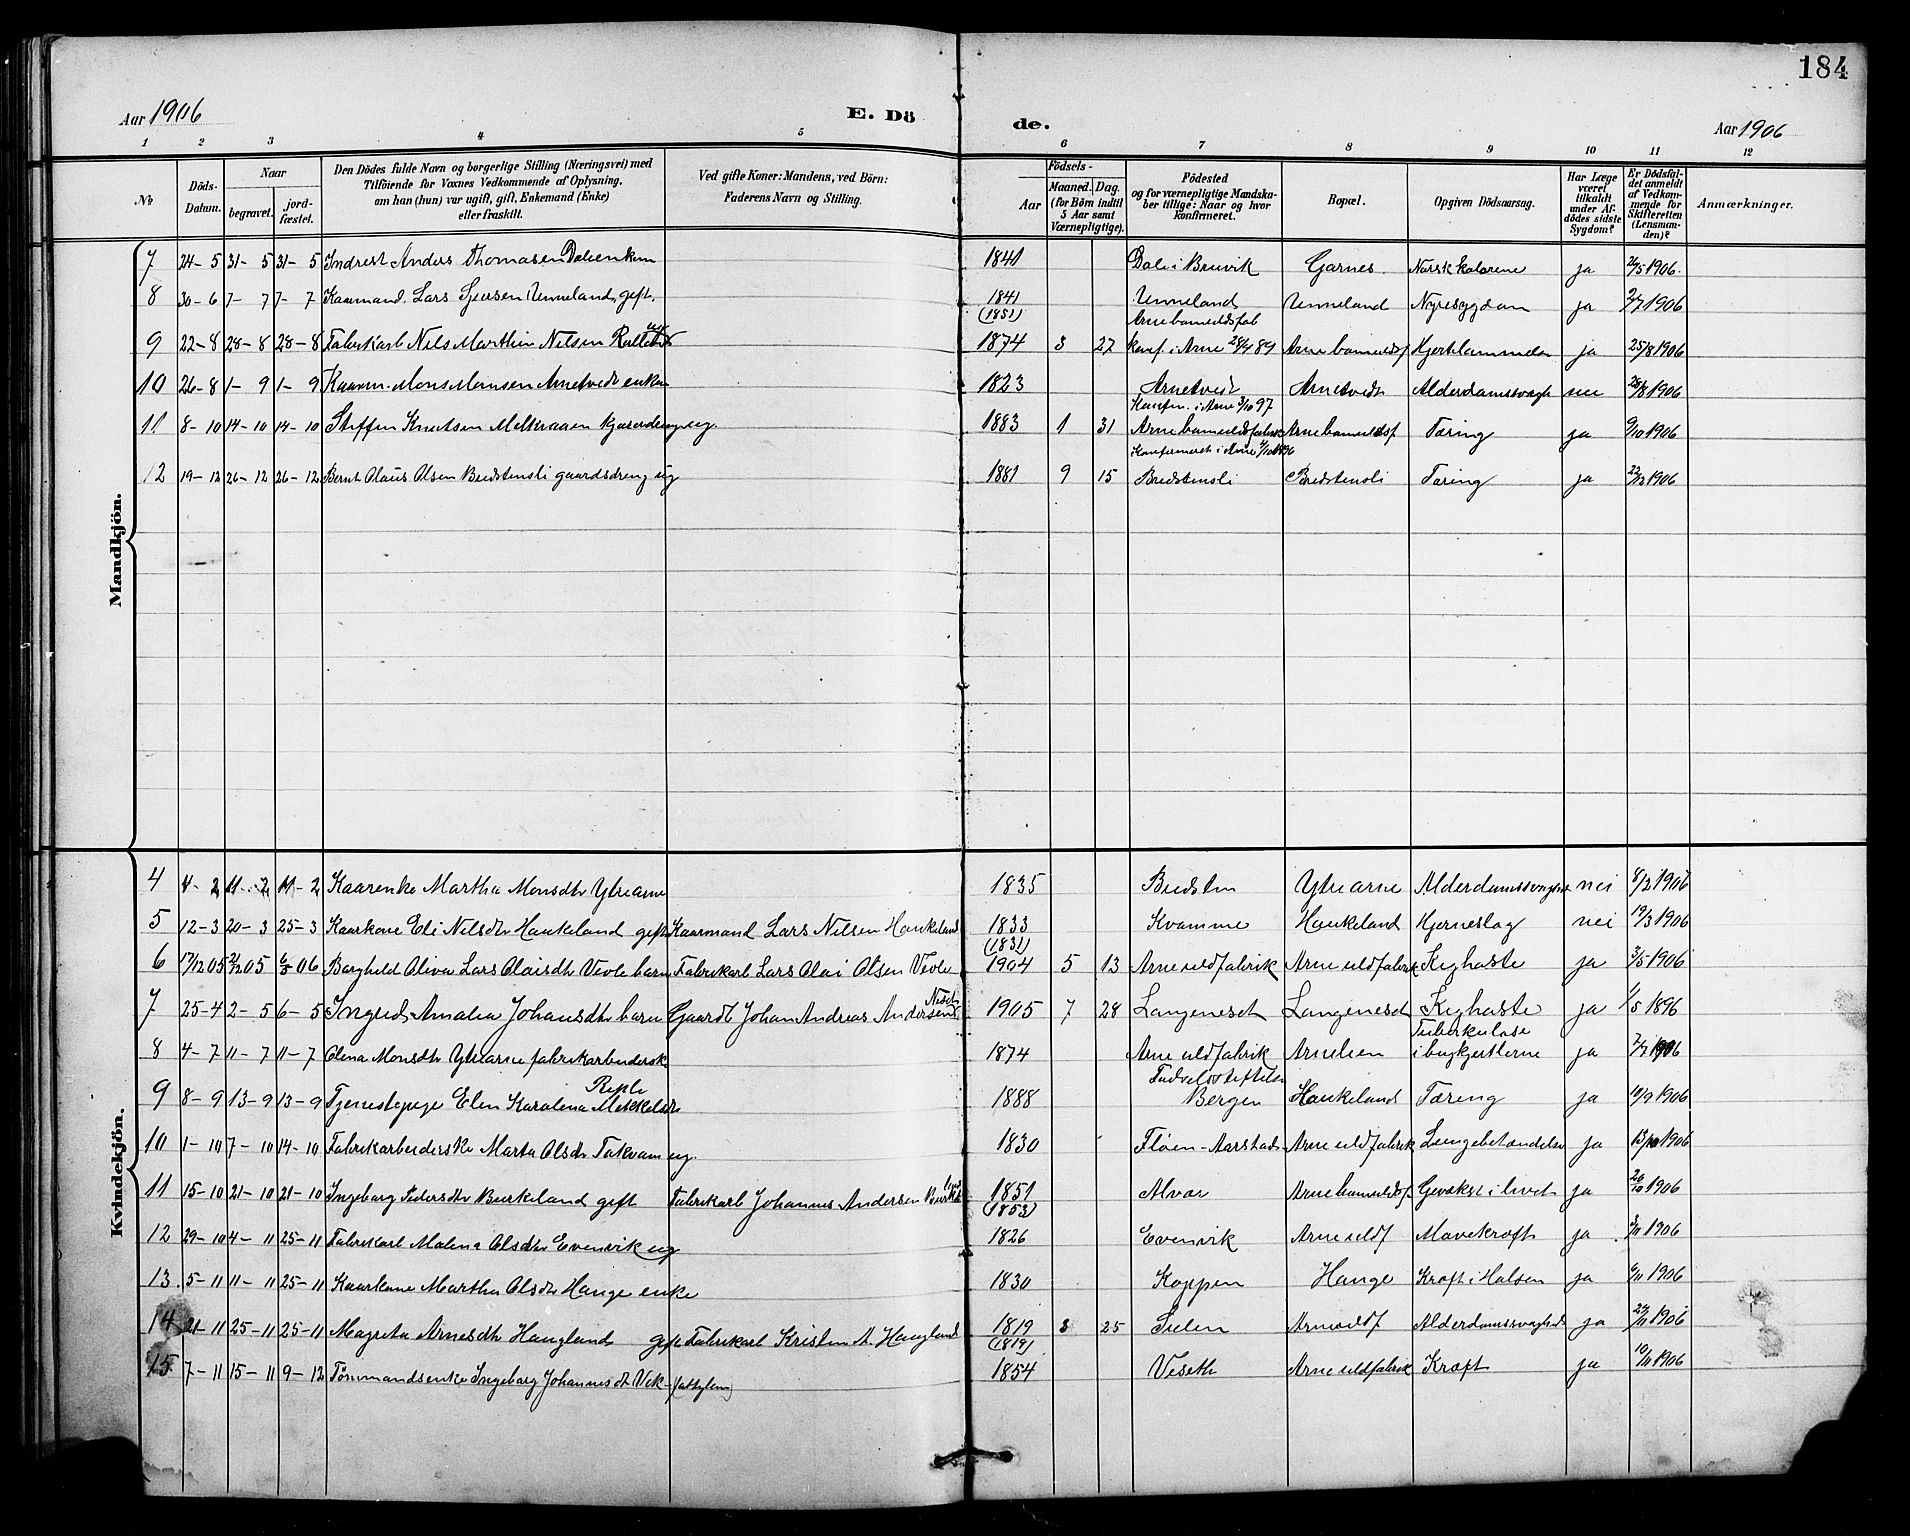 184
Aar 1906 E. Dö de. Aar 1906
1 2 3 4 5 6 7 8 9 10 11 12
№
Döds-Datum.
Naar
begravet.
jord-fæstet.
Den Dödes fulde Navn og borgerlige Stilling (Næringsvei) med
Tilföiende for Voxnes Vedkommende af Oplysning,
om han (hun) var ugift, gift, Enkemand (Enke)
eller fraskilt.
Ved gifte Koner: Mandens, ved Börn:
Faderens Navn og Stilling.
Födsels-
Aar
Maaned. Dag.
(for Börn indtil
5 Aar samt
Værnepligtige).
Födested
og for værnepligtige Mandska-
ber tillige: Naar og hvor
konfirmeret.
Bopæl.
Opgiven Dödsaarsag.
Har Læge
været
tilkaldt
under Af-
dödes sidste
Sygdom?
Er Dödsfal-
det anmeldt
af Vedkom-
mende for
Skifteretten
(Lensman-
den)?
Anmærkninger.
Mandkjön.
7 24-5 31-5 31-5 Indrest Anders Thomasen 1841 Dale i Bruvik Garnes ja 26/5 1906.
8 30-6 7-7 7-7 Kaarmand Lars Unneland, gift. 1841 (1851) Unneland Unneland Nyresygdom ja 2/7 1906
9 22-8 28-8 28-8 Fabrikarb Nils Marthin Nilsen 1874 3 27 konf. i Arne 28/4 89 ja 25/8 1906
10 26-8 1-9 1-9 Kaarm. Mons Monsen Arnetvedt enkem 1823 Arnetveit Arnetvedt Alderdomssvagh nei 28/8 1906
11 8-10 14-10 14-10 Steffen Knutsen ug. 1883 1 31 Konfirm. i Arne 3/10 97 Tæring ja 9/10 1906
12 19-12 26-12 26-12 Bernt Olaus Olsen Bredstensli gaardsdreng ug 1881 9 15 Bredstensli Bredstensli Tæring ja 22/12 1906
Kvindekjön.
4 4-2 11-2 11-2 Kaarenke Martha Monsdtr Ytrearne 1835 Bredsten Ytrearne Alderdomssvaghet nei 8/2 1906
5 12-3 20-3 25-3 Kaarkone Eli Nilsdtr Haukeland gift Kaarmand Lars Nilsen Haukeland 1833 (1831) Kvamme Haukeland Hjerneslag nei 19/3 1906
6 17/12 05 05 06 Borghild Oliva Lars Olaisdtr Vevle barn Fabrikarb Lars Olai Olsen Vevle 1904 5 13 Arne uldfabrik Arne uldfabrik Kighoste ja 3/5 1906
7 25-4 2-5 6-5 Ingrid Amalia Johansdtr barn Gaardb Johan Andreas Andersen 1905 7 28 Langenest Langenest Kighoste ja 1/5 1896
8 4-7 11-7 11-7 Olena Monsdtr Ytrearne fabrikarbeidersk 1874 Arne uldfabrik Arnelien Tuberkulose i bugkjertlerne ja 7/7 1906
9 8-9 13-9 13-9 Tjenestepige Elen Karolena Mikkelsdtr 1888 Fødselsstiftelsen Bergen Haukeland Tæring ja 10/9 1906
10 1-10 7-10 14-10 Fabrikarbeiderske Marta Olsdtr Takvam ug. 1830 Fløen-Aarstad Arne uldfabrik Lungebetændelse ja 1906
11 15-10 21-10 21-10 Ingeborg Pedersdtr Birkeland gift Fabrikarb Johannes Andersen 1851 (1853) Arne bomuldsf Gevækst i livet ja 20/10 1906
12 29-10 4-11 25-11 Fabrikarb Malena Olsdtr Evenvik ug 1826 Evenvik Arne uldf Mavekræft ja 1906
13 5-11 11-11 25-11 Kaarkone Martha Olsdtr Hauge enke 1830 Koppen Hauge Kræft i Halsen ja 6/11 1906
14 21-11 25-11 25-11 Magreta Arnesdtr Haugland gift Fabrikarb Kristen A. Haugland 1819 (1819) 3 25 Arne uldf Alderdomssvaghed ja 24/11 1906
15 7-11 15-11 9-12 Tømmandsenke Ingeborg Johannesdt Vik 1854 Veseth Arne uldfabrik Kræft ja 10/11 1906